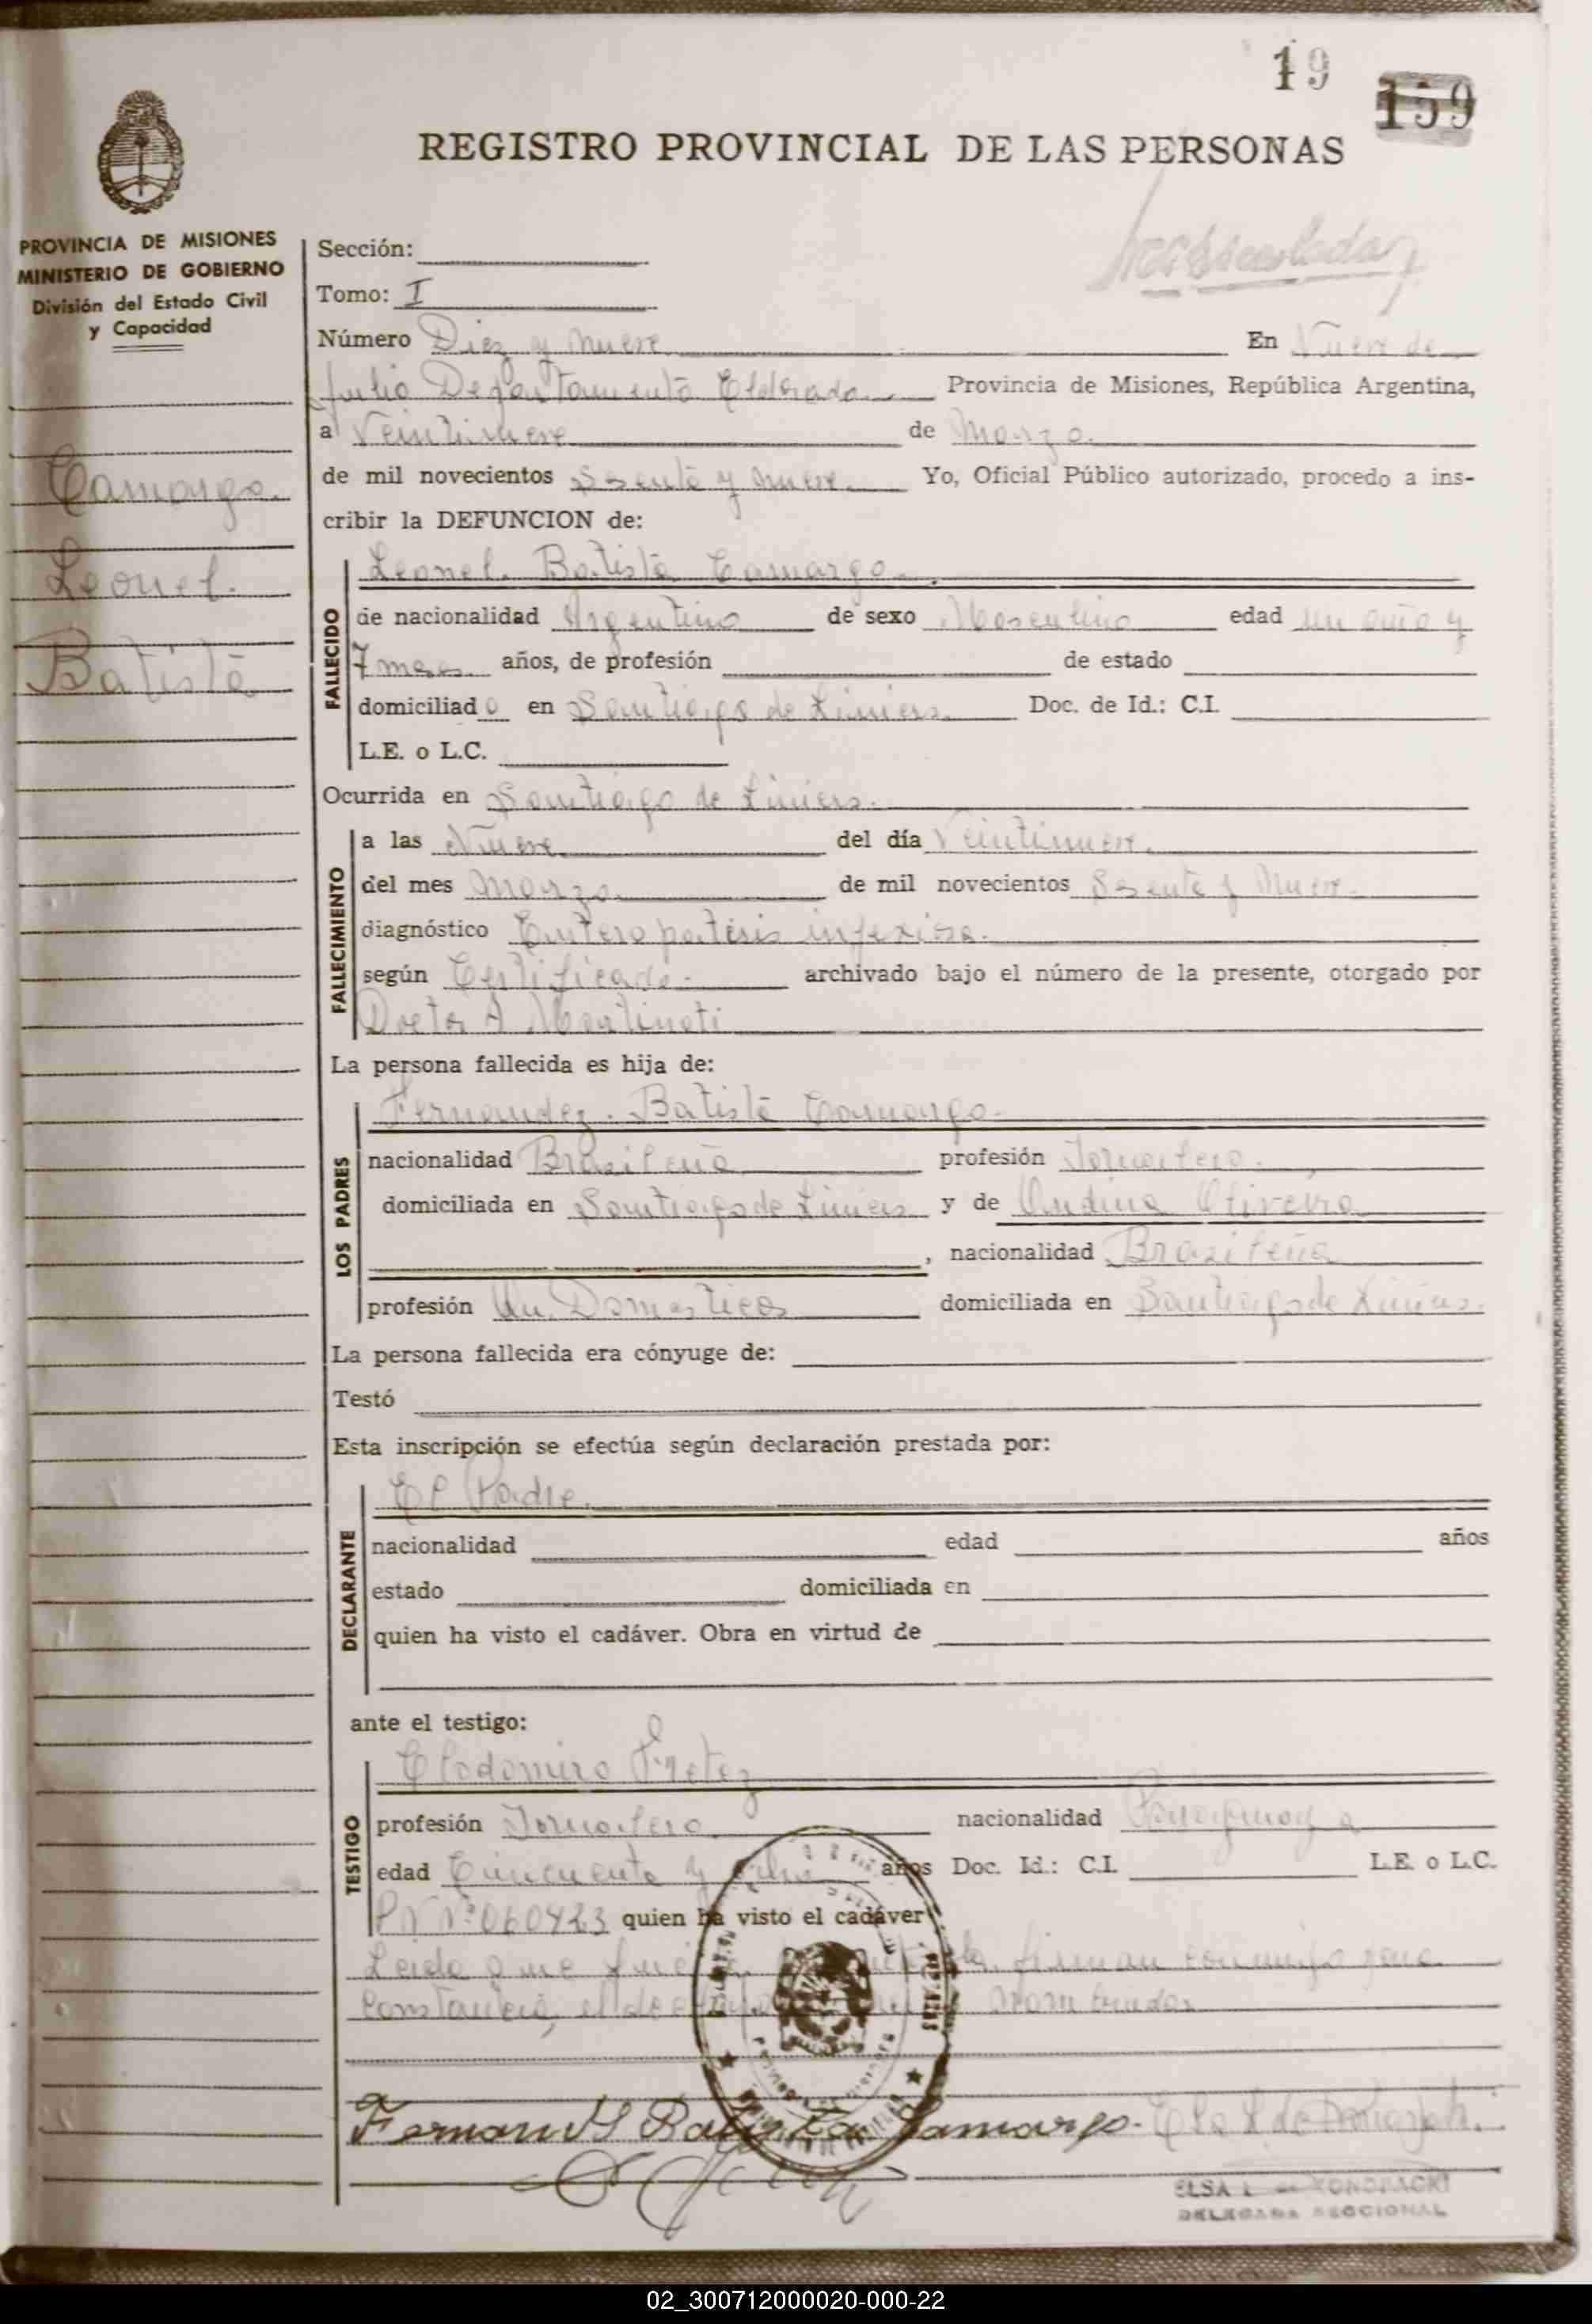 19
159
REGISTRO PROVINCIAL DE LAS PERSONAS
PROVINCIA DE MISIONES
MINISTERIO DE GOBIERNO
División del Estado Civil
y Capacidad
Camargo.
Leonel.
Batista
Sección:
Tomo: I
Número Diez y nueve En Nueve de
Julio Departamento Eldorado Provincia de Misiones, República Argentina,
a Veintinueve de Marzo.
de mil novecientos Sesenta y nueve. Yo, Oficial Público autorizado, procedo a ins-
cribir la DEFUNCION de:
Leonel. Batista Camargo.
FALLECIDO
de nacionalidad Argentino de sexo Masculino edad un año y
7 meses años, de profesión de estado
domiciliado en Santiago de Liniers. Doc. de Id.: C.I.
L.E. o L.C.
Ocurrida en Santiago de Liniers.
FALLECIMIENTO
a las Nueve del día Veintinueve.
del mes Marzo de mil novecientos Sesenta y Nueve.
diagnóstico
según Certificado. archivado bajo el número de la presente, otorgado por
Doctor A Martinoti
La persona fallecida es hija de:
LOS PADRES
Fernandez. Batista Camargo.
nacionalidad Brasileña profesión Jornalero.
domiciliada en Santiago de Liniers y de Undina Oliveira
, nacionalidad Brazileña
profesión Qu. Domesticos domiciliada en Santiago de Liniers.
La persona fallecida era cónyuge de:
Testó
Esta inscripción se efectúa según declaración prestada por:
DECLARANTE
El Padre.
nacionalidad edad años
estado domiciliada en
quien ha visto el cadáver. Obra en virtud de
ante el testigo:
TESTIGO
Clodomiro
profesión Jornalero nacionalidad Paraguaya
edad Cincuenta y años Doc. Id.: C.I. L.E. o L.C.
Nº 060423 quien ha visto el cadáver
Leida que fué firman conmigo para
Constancia, el nombrados
Batista Camargo.
ELSA L. de KONOPACKI
DELEGADA SECCIONAL
02_300712000020-000-22